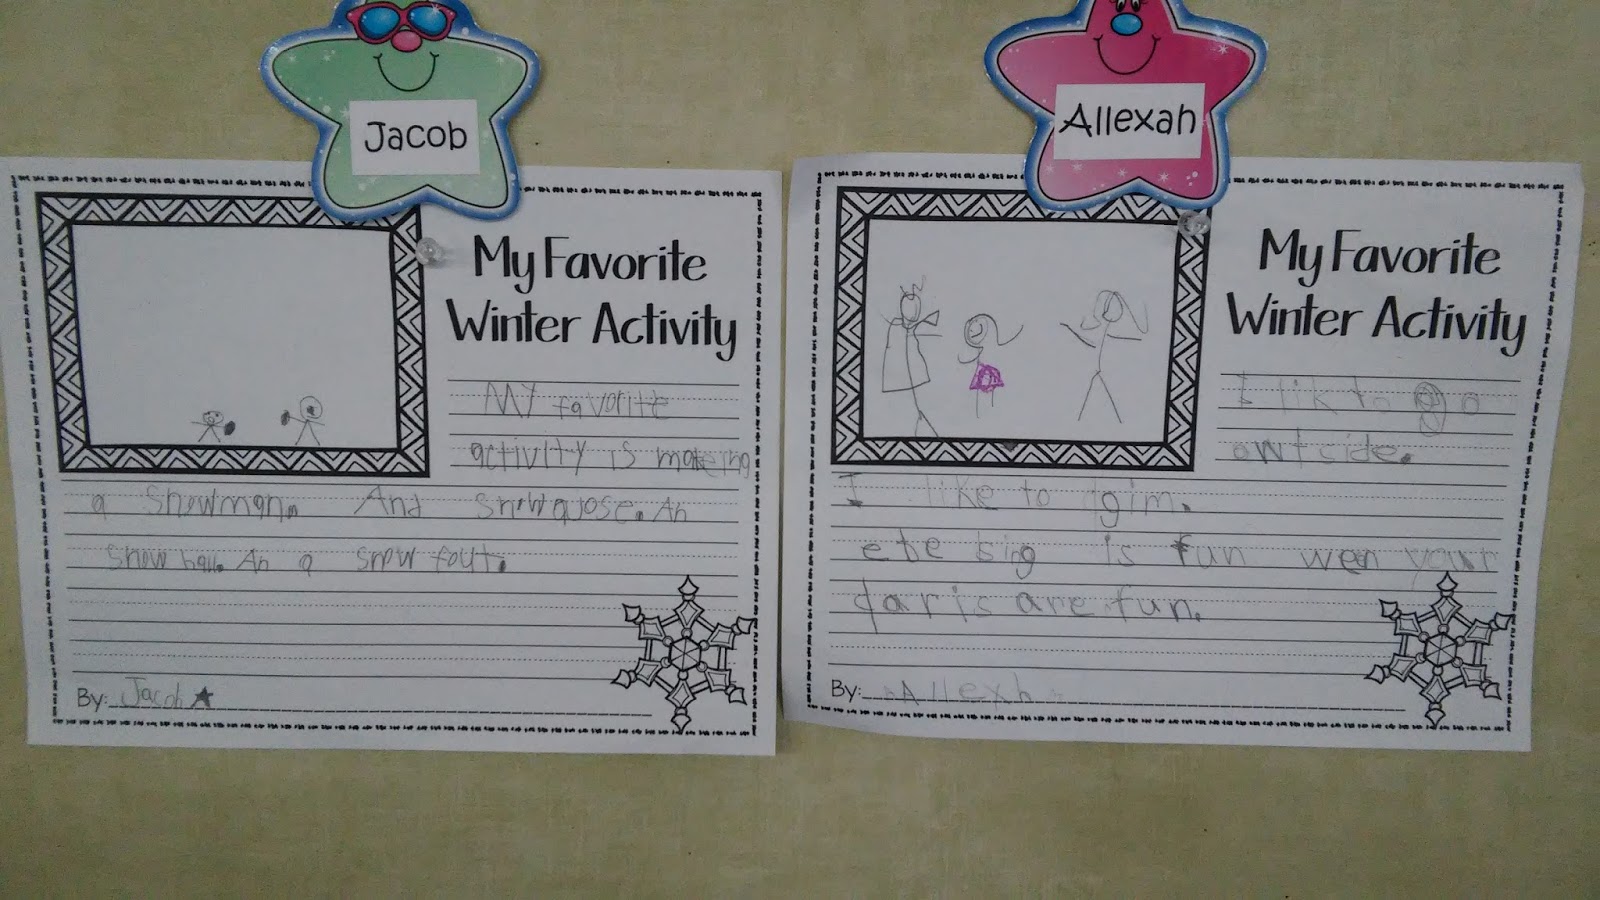 Jacob
My Favorite
Winter Activity
MY favorite
activity is makeing
a snowman. And snowajose. An
snow ball. An a snow fout.
By: Jacob
Allexah
My Favorite
Winter Activity
I lik to go
owtside.
I like to gim.
ete sing is fun wen your
daris are fun.
By: Allexh